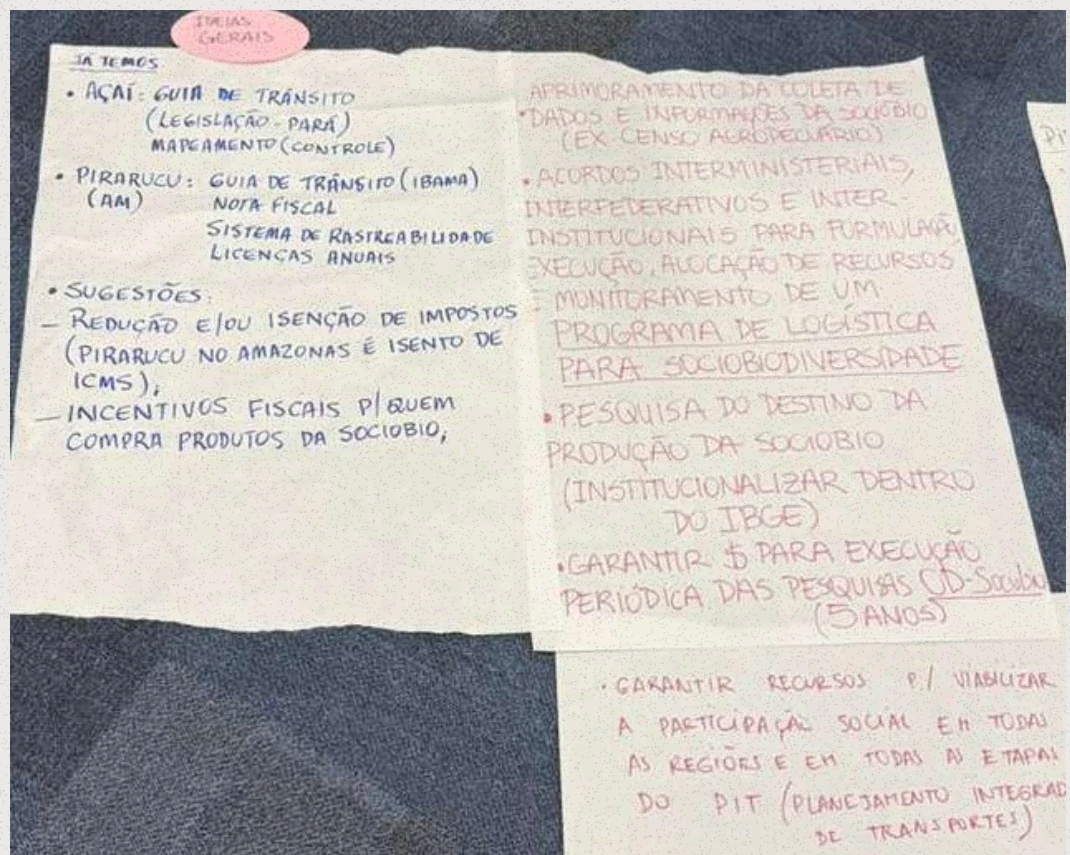 IDEIAS
GERAIS
JÁ TEMOS
• AÇAÍ: GUIA DE TRÂNSITO
(LEGISLAÇÃO - PARÁ)
MAPEAMENTO (CONTROLE)
• PIRARUCU: GUIA DE TRÂNSITO (IBAMA)
(AM) NOTA FISCAL
SISTEMA DE RASTREABILIDADE
LICENÇAS ANUAIS
• SUGESTÕES:
– REDUÇÃO E/OU ISENÇÃO DE IMPOSTOS
(PIRARUCU NO AMAZONAS É ISENTO DE
ICMS);
– INCENTIVOS FISCAIS P/ QUEM
COMPRA PRODUTOS DA SOCIOBIO;
APRIMORAMENTO DA COLETA DE
• DADOS E INFORMAÇÕES DA SOCIOBIO
(EX CENSO AGROPECUÁRIO)
• ACORDOS INTERMINISTERIAIS,
INTERFEDERATIVOS E INTER-
INSTITUCIONAIS PARA FORMULAÇÃO,
EXECUÇÃO, ALOCAÇÃO DE RECURSOS
E MONITORAMENTO DE UM
PROGRAMA DE LOGÍSTICA
PARA SOCIOBIODIVERSIDADE
• PESQUISA DO DESTINO DA
PRODUÇÃO DA SOCIOBIO
(INSTITUCIONALIZAR DENTRO
DO IBGE)
• GARANTIR $ PARA EXECUÇÃO
PERIÓDICA DAS PESQUISAS OD-Sociobio
(5 ANOS)
• GARANTIR RECURSOS P/ VIABILIZAR
A PARTICIPAÇÃO SOCIAL EM TODAS
AS REGIÕES E EM TODAS AS ETAPAS
DO PIT (PLANEJAMENTO INTEGRAD
DE TRANSPORTES)